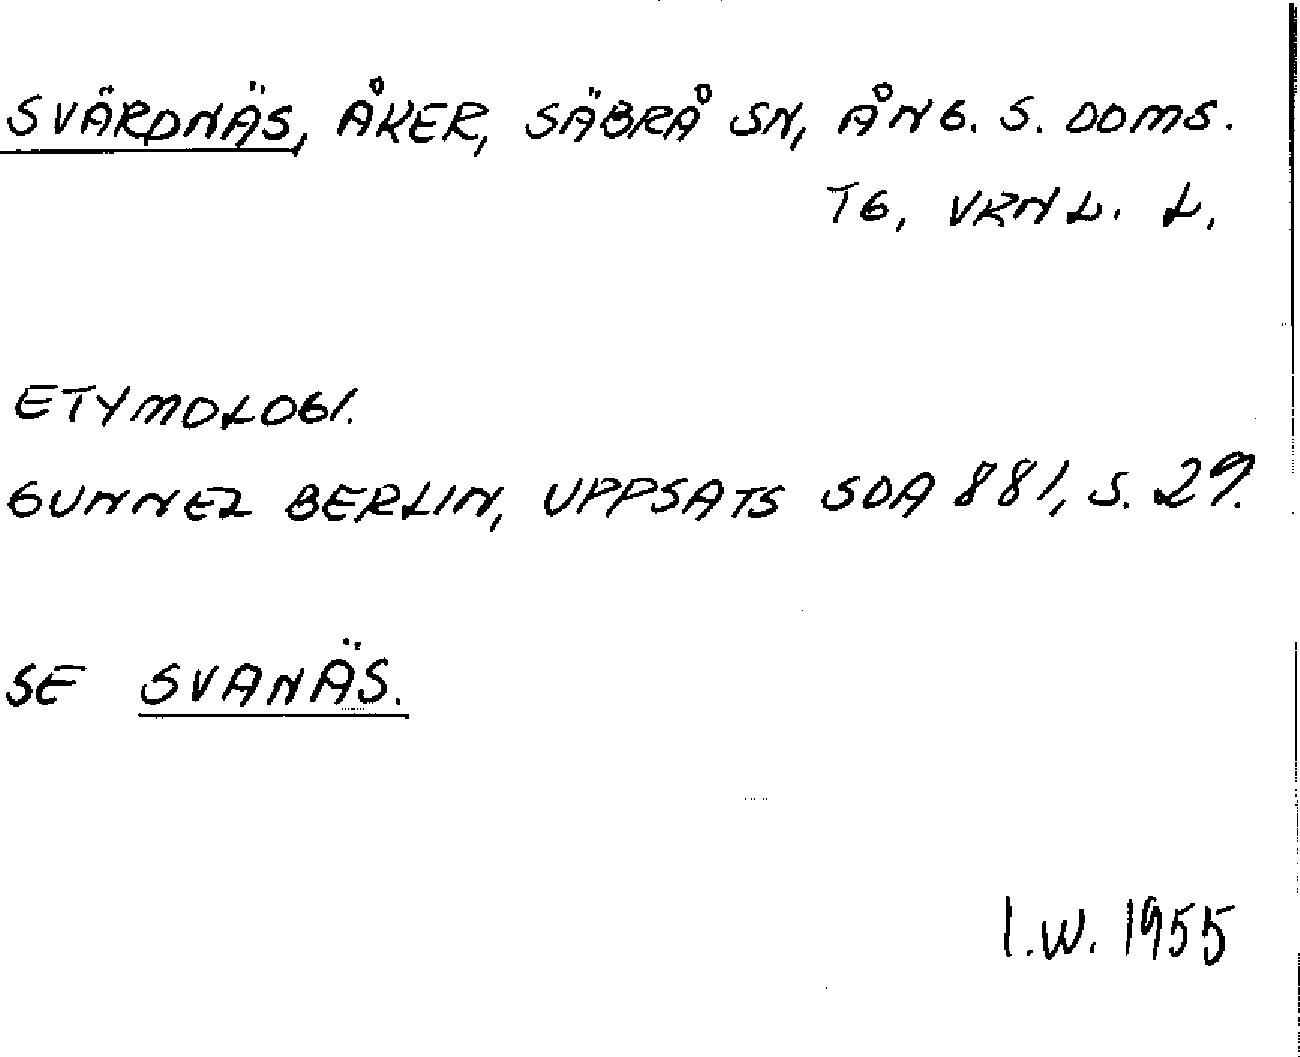 SVÄRDNÄS, ÅKER, SÄBRÅ SN, ÅNG. S. DOMS.
TG, VRNL. L.
ETYMOLOGI.
GUNNEL BERLIN, UPPSATS SOA 881, S. 29.
SE SVANÄS.
I.W. 1955